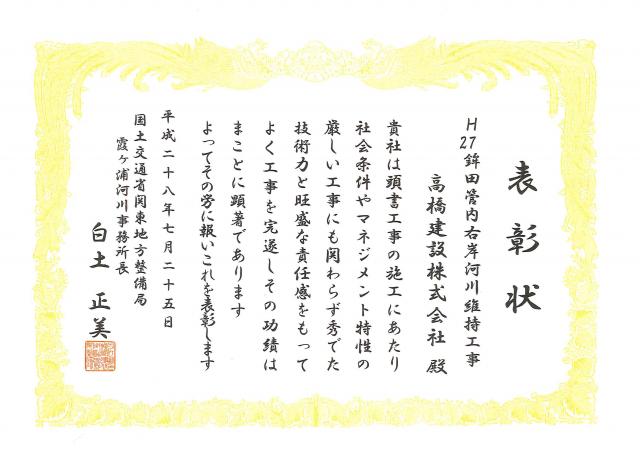 表彰状
H27鉾田管内右岸河川維持工事
高橋建設株式会社 殿
貴社は頭書工事の施工にあたり
社会条件やマネジメント特性の
厳しい工事にも関わらず秀でた
技術力と旺盛な責任感をもって
よく工事を完遂しその功績は
まことに顕著であります
よってその労に報いこれを表彰します
平成二十八年七月二十五日
国土交通省関東地方整備局
霞ヶ浦河川事務所長
白土 正美